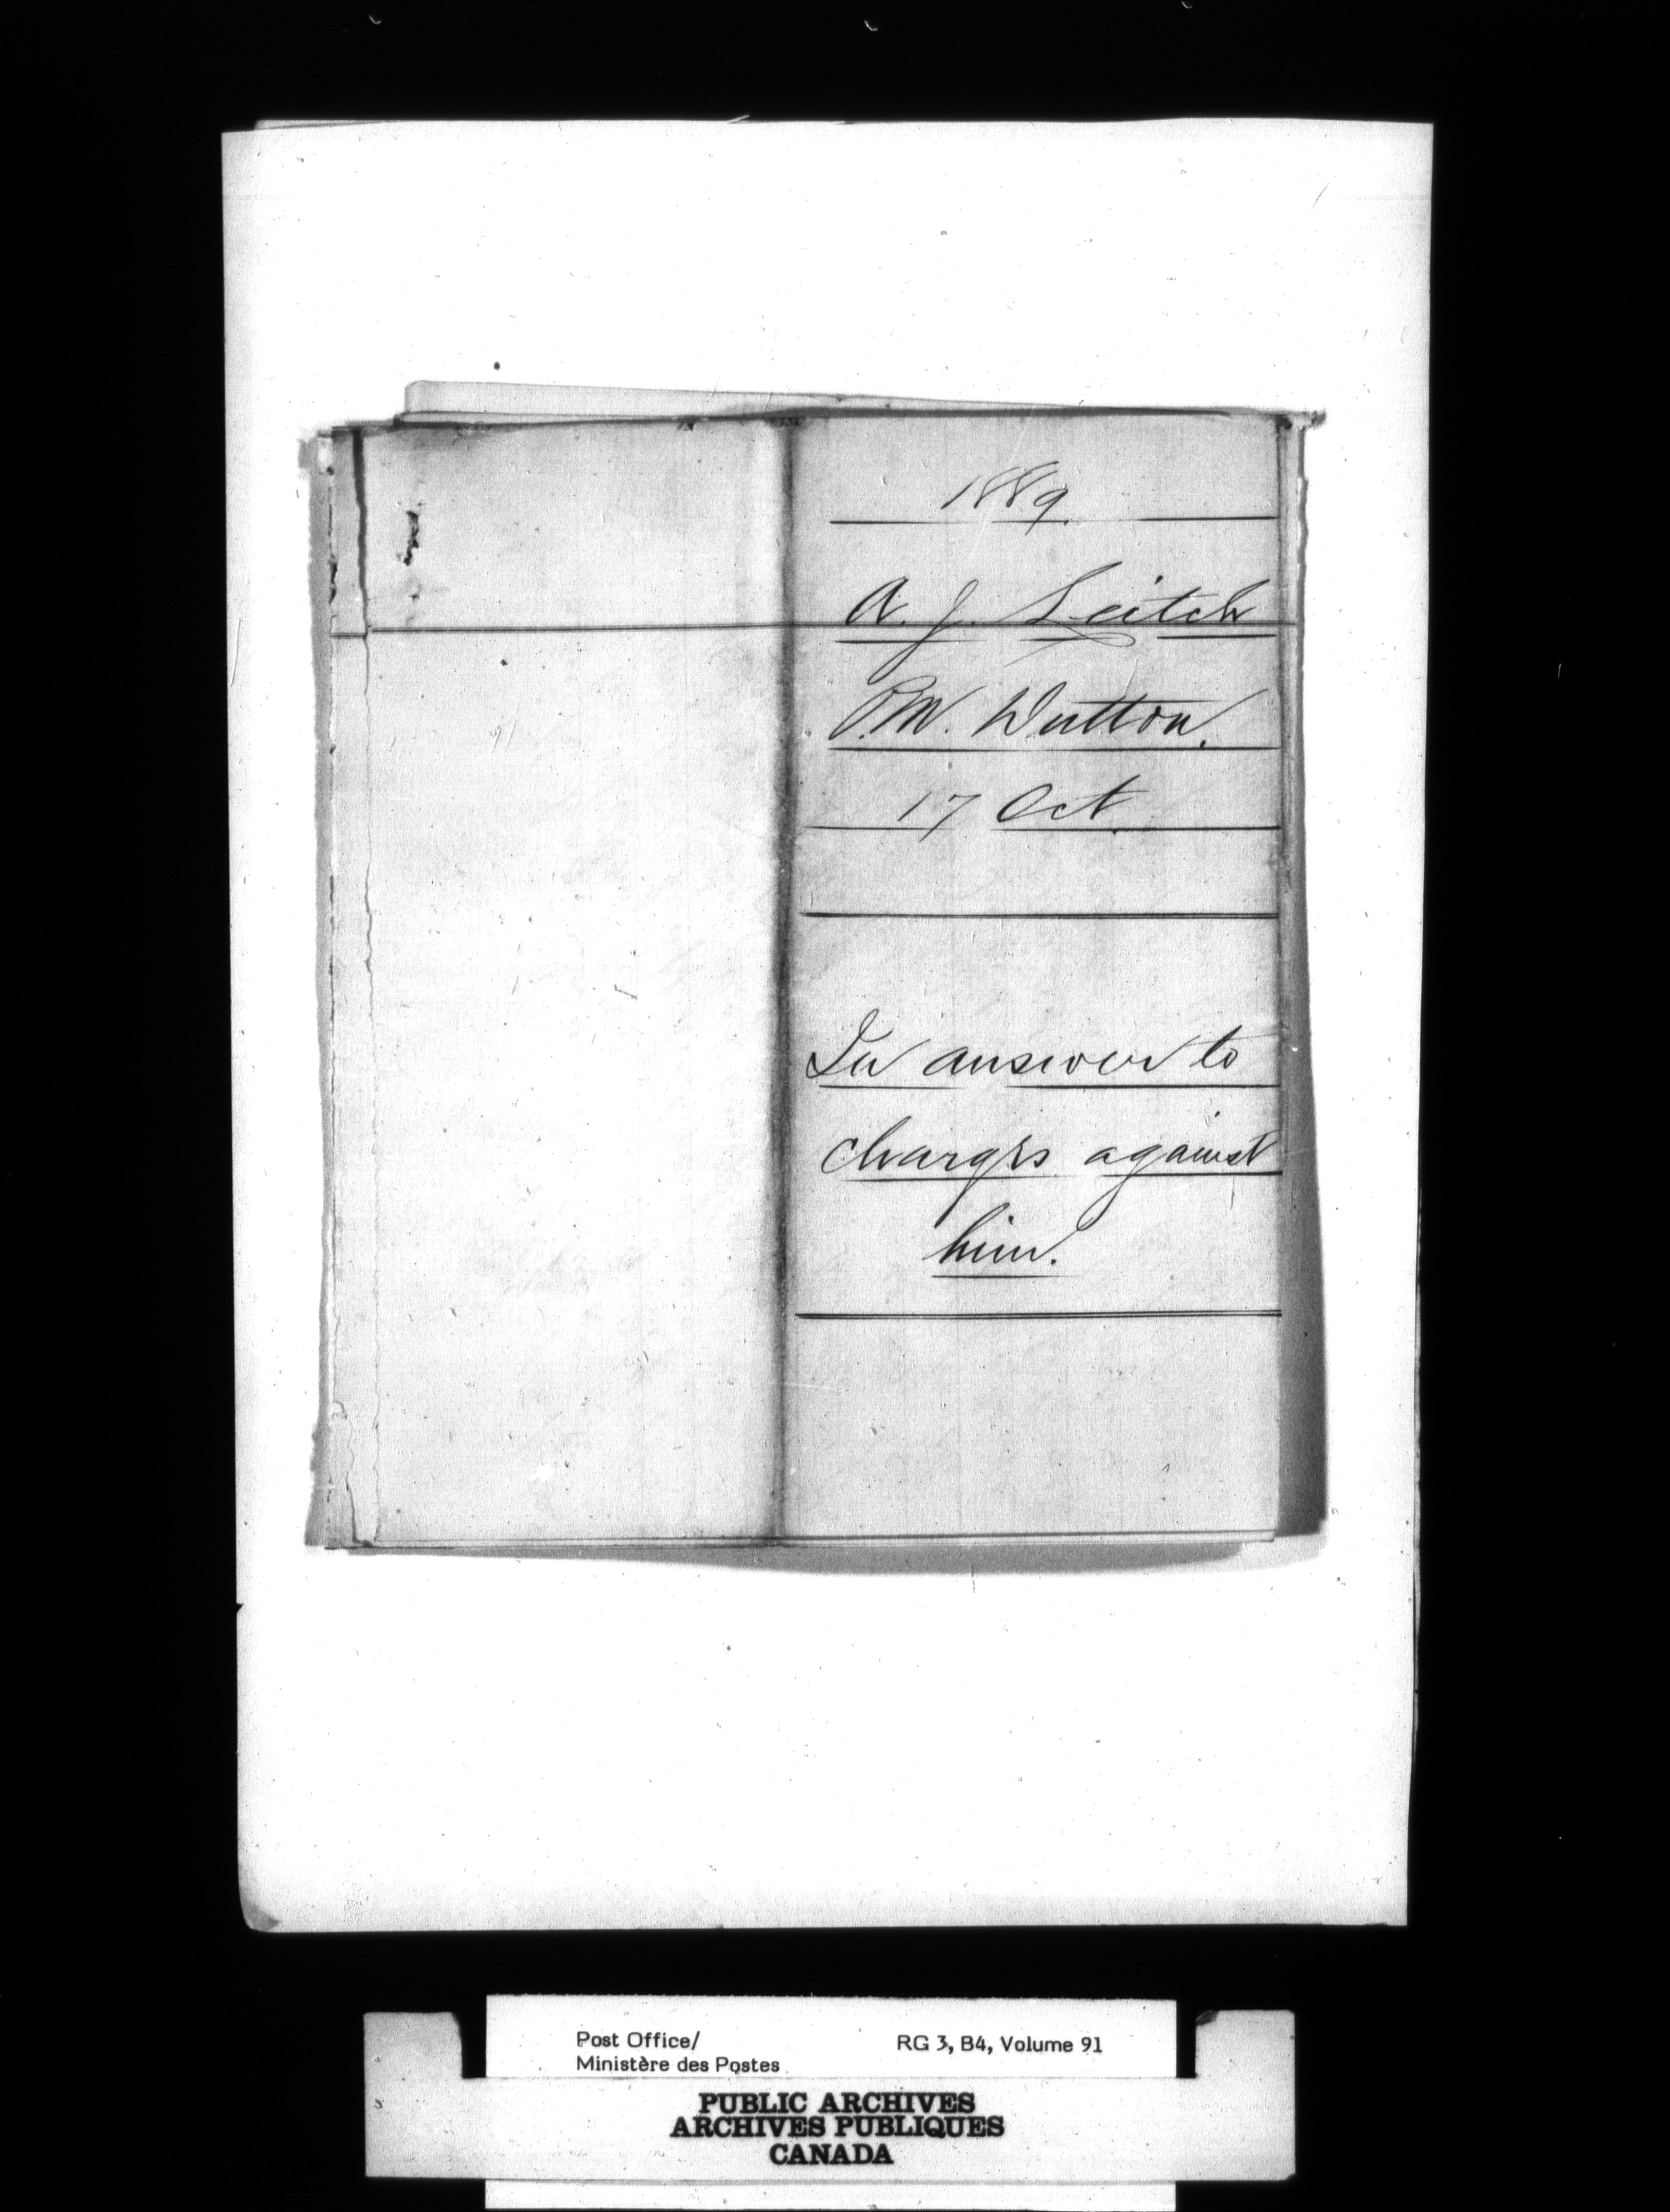 1889.
A. J. Leitch
P.M. Dutton.
17 Oct.
In answer to
charges against
him.
Post Office/
Ministère des Postes
RG 3, B4, Volume 91
PUBLIC ARCHIVES
ARCHIVES PUBLIQUES
CANADA